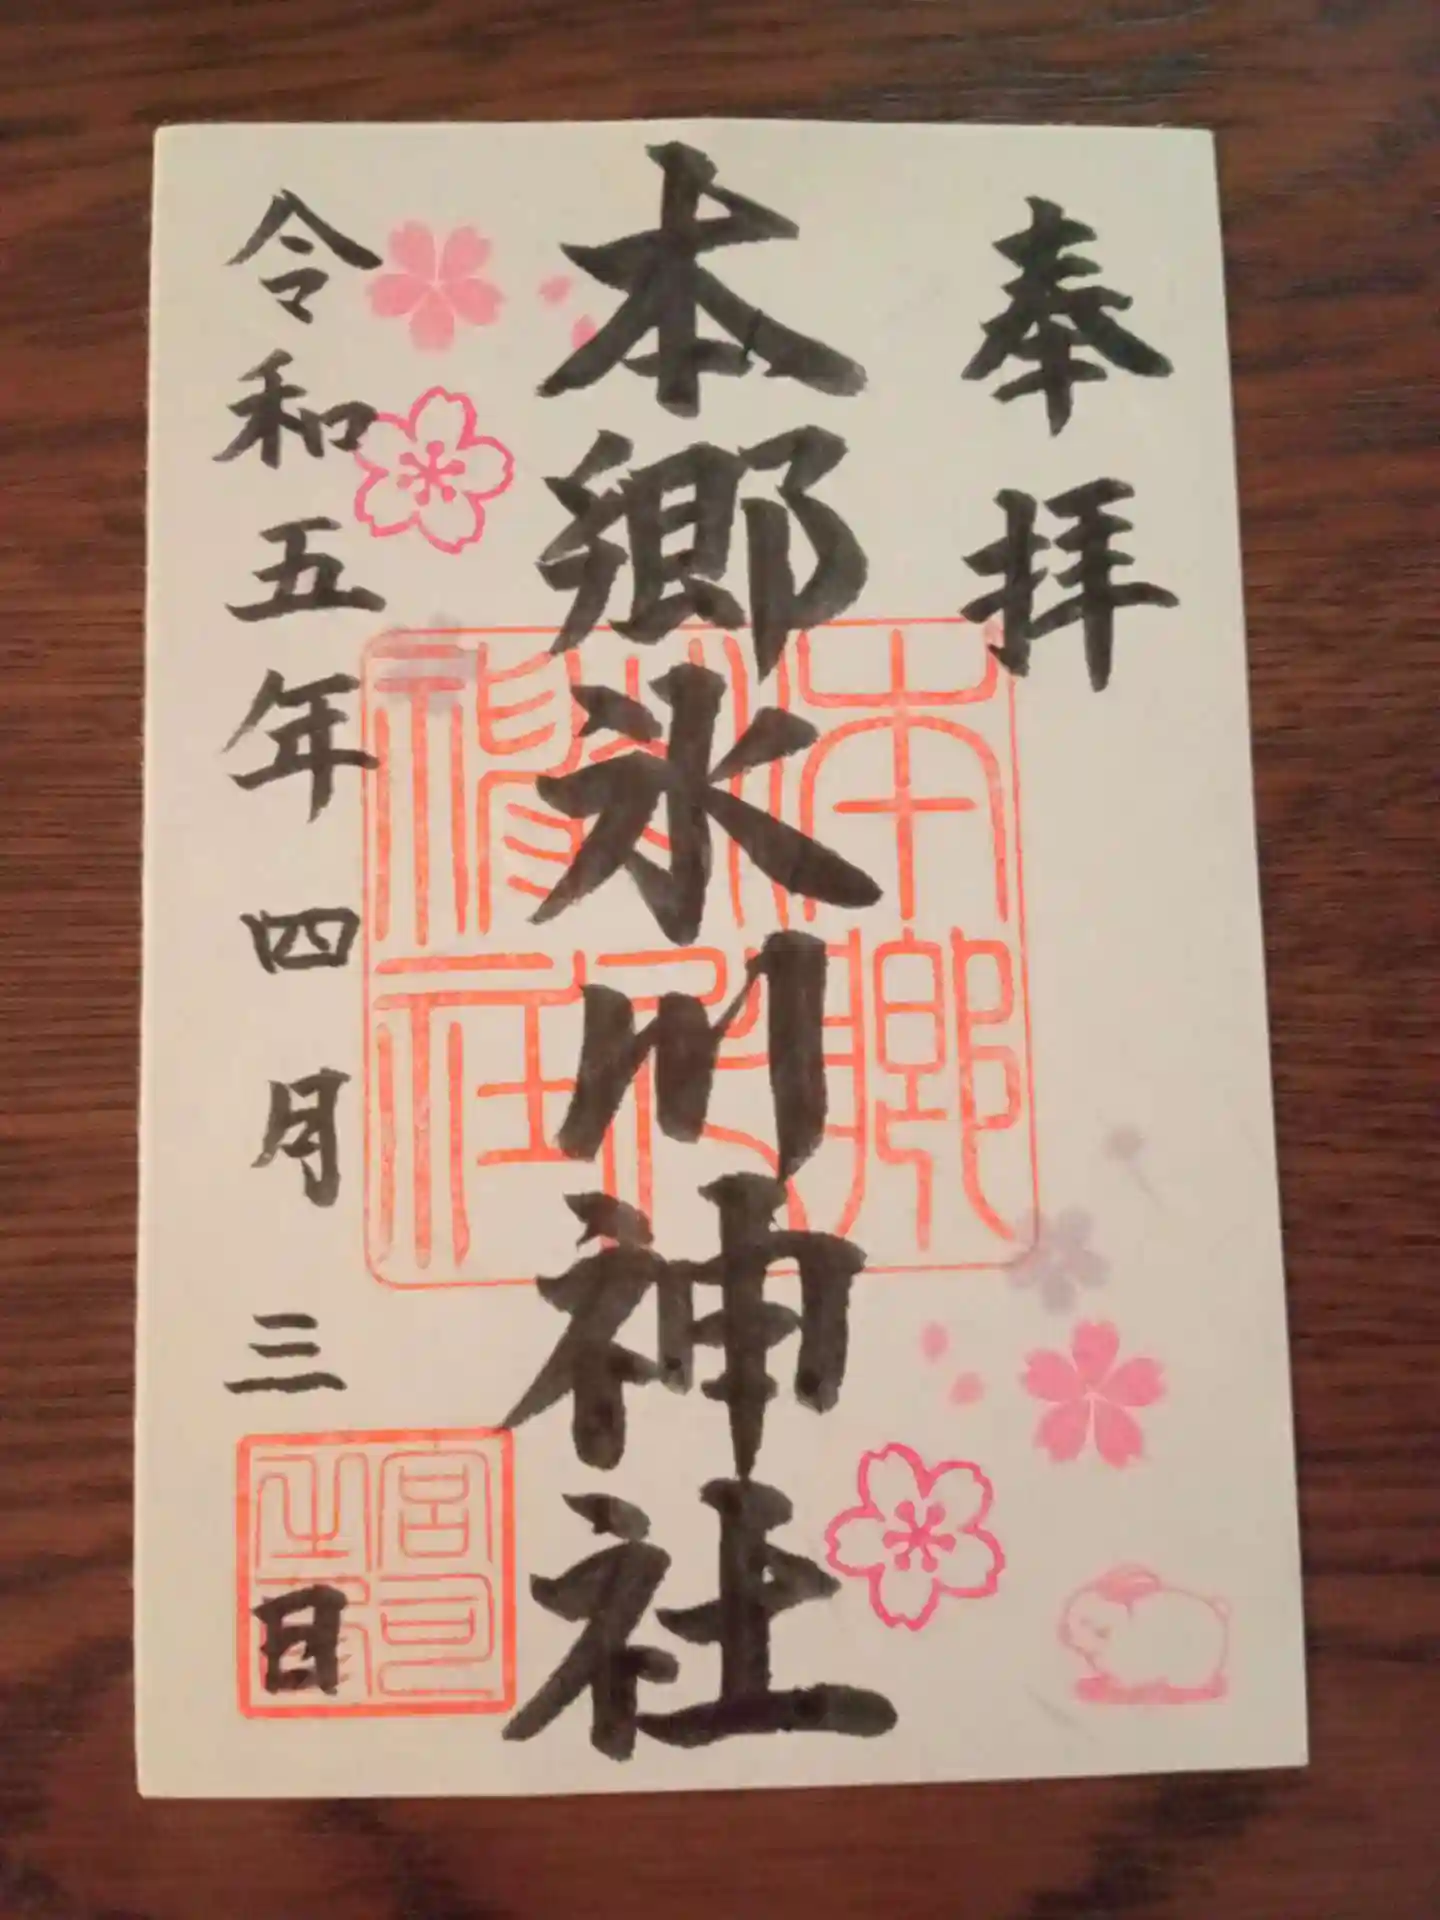 奉拝
本郷氷川神社
令和五年四月三日
本郷
氷川
神社
宮司
之印